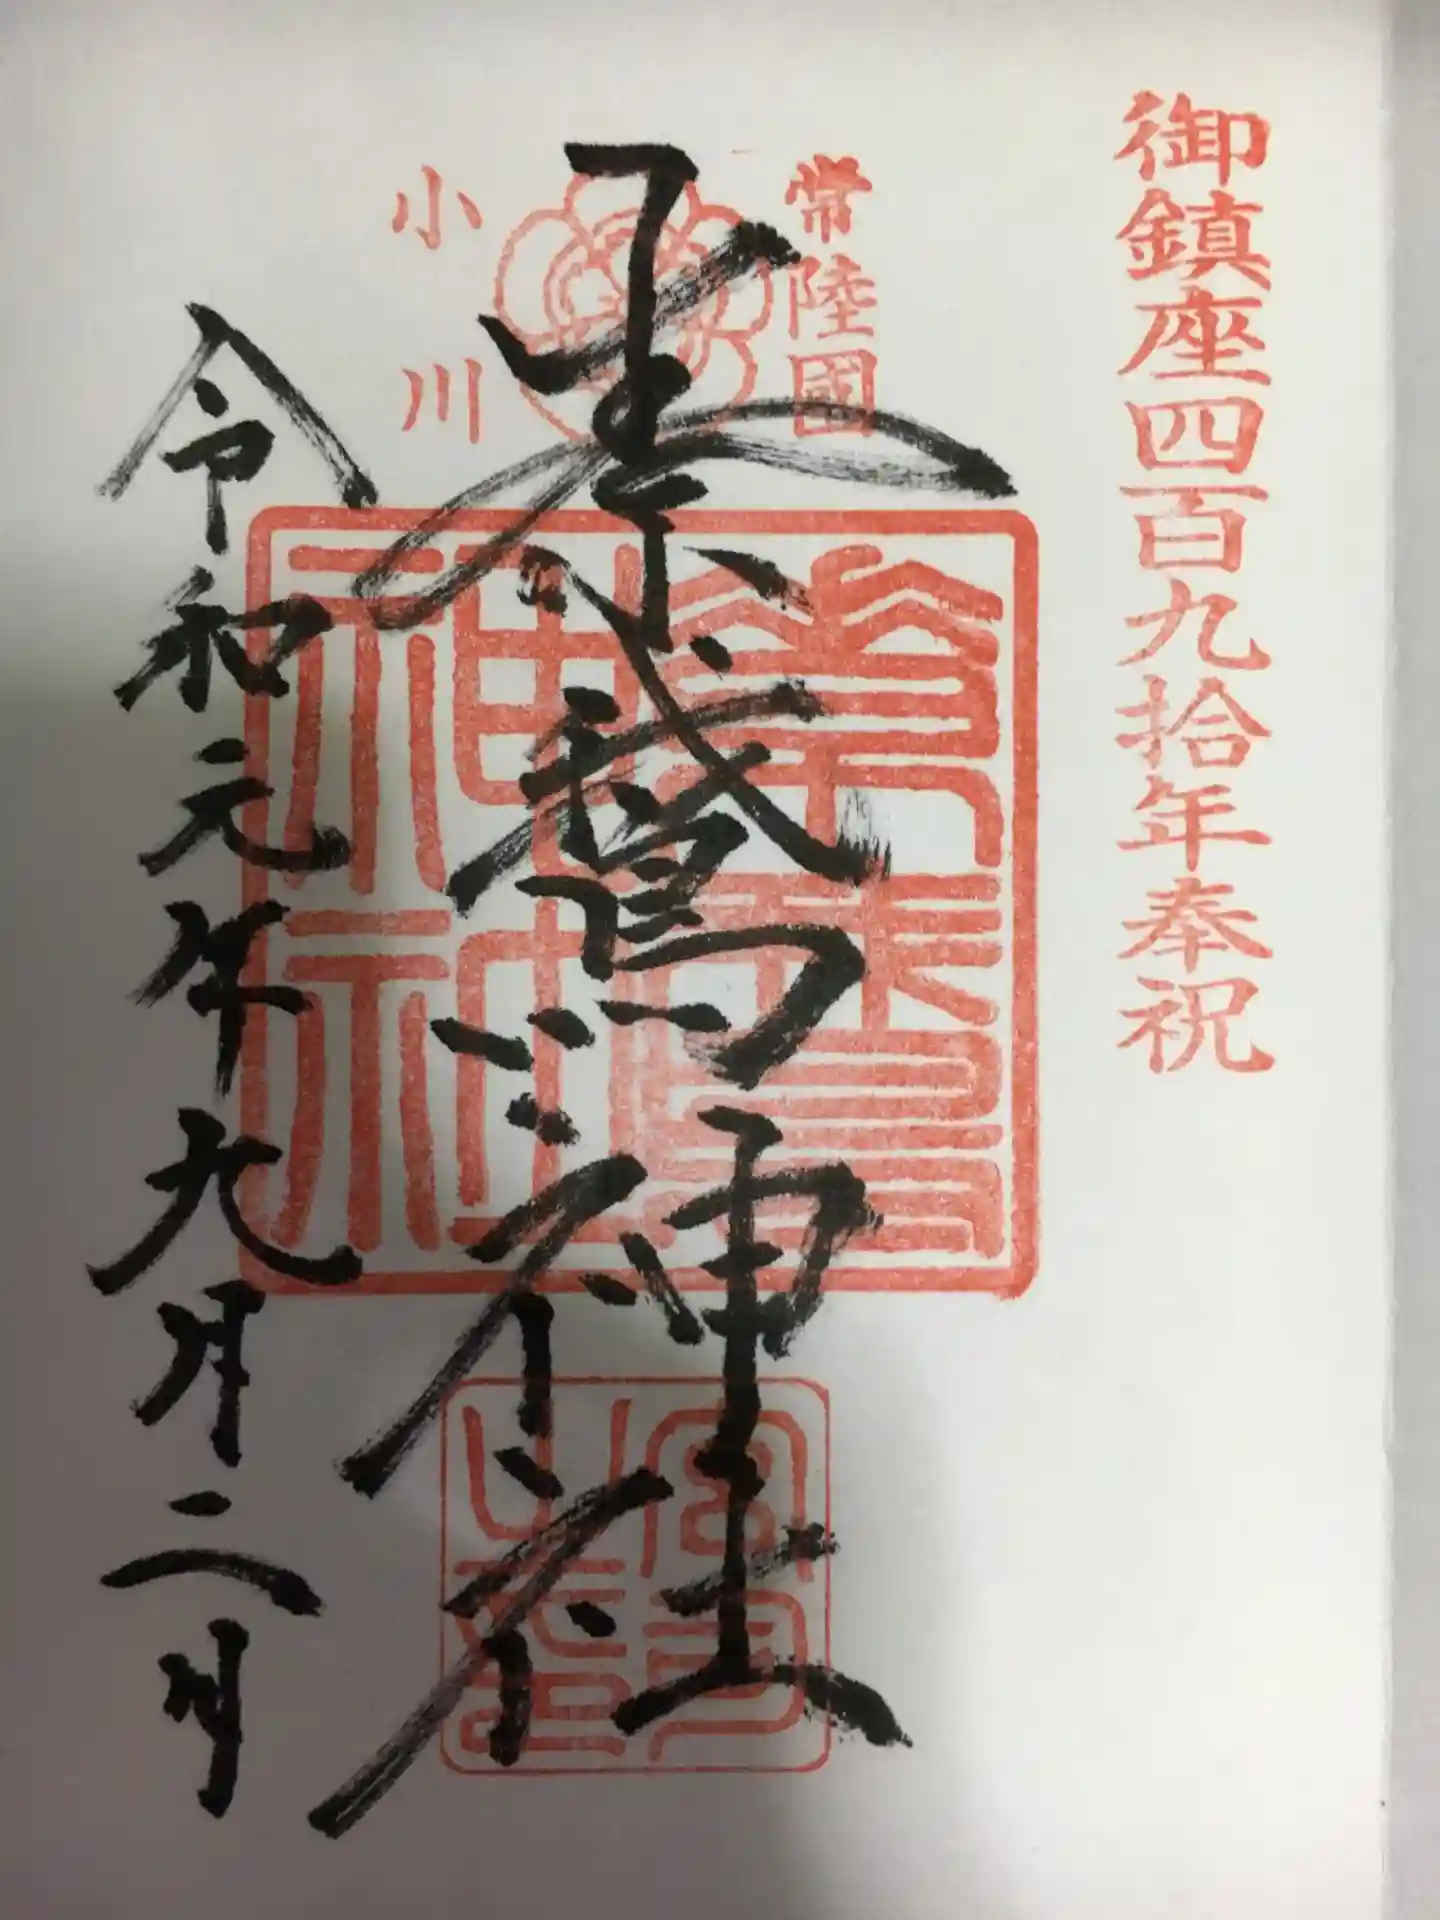 御鎮座四百九拾年奉祝
常陸國
小川
素鵞神社
素鵞
神社
宮司
之印
令和元年九月二日